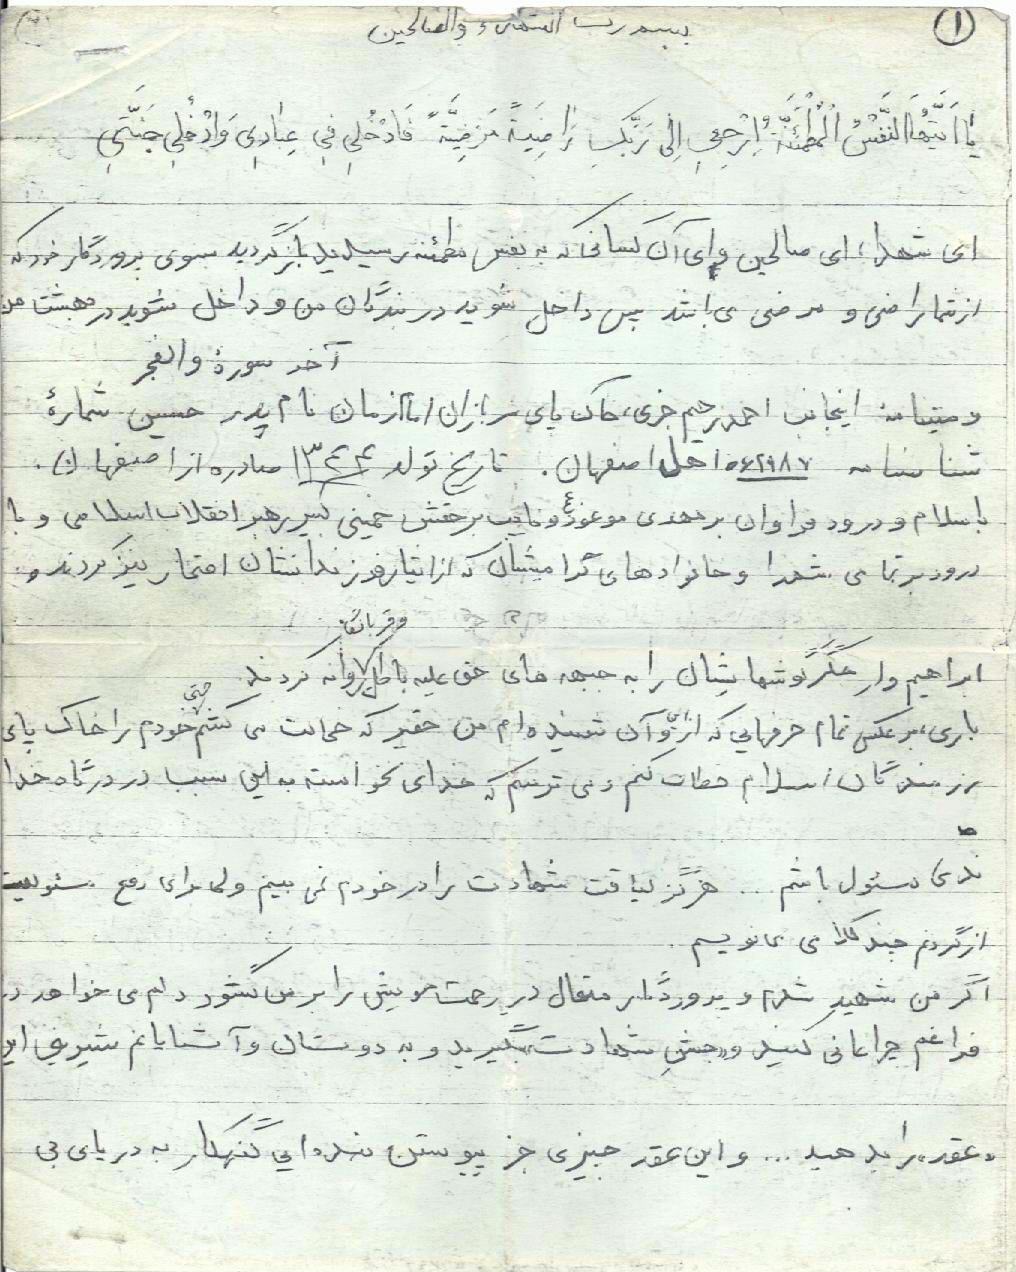 ۱
بسم رب الشهداء والصالحین
یا اَیَّتُهَا النَّفْسُ الْمُطْمَئِنَّةُ اِرْجِعِی اِلی رَبِّکِ رٰاضِیَةً مَرْضِیَّةً فَادْخُلِی فِی عِبٰادِی وَادْخُلِی جَنَّتِی
ای شهدا، ای صالحین و ای آن کسانی که به نفس مطمئنه رسیدید بازگردید سوی پروردگار خود که
از شما راضی و مرضی می‌باشد پس داخل شوید در بندگان من و داخل شوید در بهشت من
آخر سورهٔ والفجر
وصیتنامهٔ اینجانب احمد رحیم خری، خاک پای سربازان امام زمان نام پدر حسین شمارهٔ
شناسنامه ۵۶۲۹۸۷ اهل اصفهان. تاریخ تولد ۱۳۴۴ صادره از اصفهان.
با سلام و درود فراوان بر مهدی موعود(ع) و نایب برحقش خمینی کبیر رهبر انقلاب اسلامی و با
درود بر تمامی شهدا و خانوادهای گرامیشان که از ایثار فرزندانشان افتخار نیز کردند و
و قربانی
ابراهیم وار جگرگوشهایشان را به جبهه های حق علیه باطل روانه کردند
باری، بر عکس تمام حرفهایی که از این و آن شنیده ام من حقیر که خجالت می کشم حتی خودم را خاک پای
رزمندگان اسلام خطاب کنم و می ترسم که خدای نخواسته به این سبب در درگاه خدا
مسئول باشم... هرگز لیاقت شهادت را در خودم نمی بینم ولی برای رفع مسئولیت
از گردنم چند کلامی می نویسم.
اگر من شهید شدم و پروردگار متعال در رحمت خویش را بر من گشود دلم می خواهد در
فراغم چراغانی کنید و جشن شهادت بگیرید و به دوستان و آشنایانم شیرینی این
«عقد» را بدهید... و این عقد چیزی جز پیوستن بنده ایی گنهکار به دریای بی